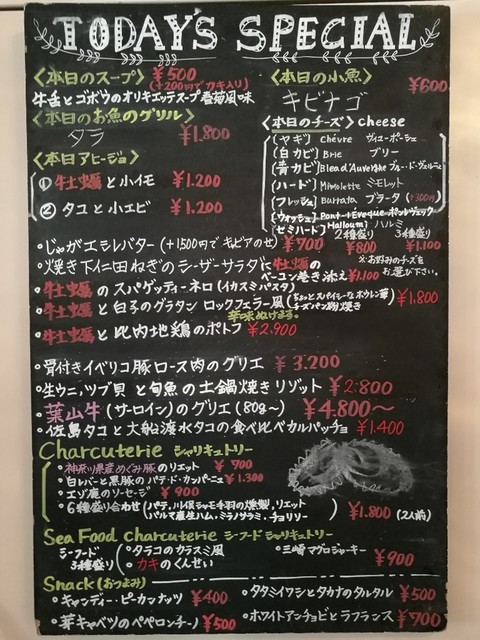 TODAY'S SPECIAL
〈本日のスープ〉 ¥500
(+200円でカキ入り)
牛舌とゴボウのオリキエッテスープ春菊風味
〈本日のお魚のグリル〉
タラ ¥1.800
〈本日アヒージョ〉
① 牡蠣と小イモ ¥1.200
② タコと小エビ ¥1.200
〈本日の小魚〉 ¥600
キビナゴ
〈本日のチーズ〉cheese
(ヤギ) Chévre ヴィユーポーシェ
(白カビ) Brie ブリー
(青カビ) Bleu d'Auvergne ブルー・ド・ヴェルニュ
(ハード) Mimolette ミモレット
(フレッシュ) Burrata ブラータ (+300円)
(ウォッシュ) Pont-l'Évêque ポンレヴェック
(セミハード) Halloumi ハルミ
2種盛り 3種盛り
¥800 ¥1.100
※お好みのチーズをお選び下さい。
・じゃがエシレバター (+1500円でキャビアのせ) ¥700
・焼き下仁田ねぎのシーザーサラダ 牡蠣のベーコン巻き添え ¥1.100
・牡蠣のスパゲッティーネロ (イカスミパスタ)
・牡蠣と白子のグラタン ロックフェラー風 (ちょっとスパイシーなホウレン草 チーズパン粉焼き) ¥1.800
辛味ぬけます。
・牡蠣と比内地鶏のポトフ ¥2.900
・骨付きイベリコ豚ロース肉のグリエ ¥3.200
・生ウニ,ツブ貝と旬魚の土鍋焼きリゾット ¥2.800
・葉山牛(サーロイン)のグリエ(80g〜) ¥4.800〜
・佐島タコと大船渡水タコの食べ比べカルパッチョ ¥1.400
Charcuterie シャリキュトリー
・神奈川県産めぐみ豚のリエット ¥700
・白レバーと黒豚のパテ・ド・カンパーニュ ¥1.300
・エゾ鹿のソーセージ ¥900
・6種盛り合わせ (パテ,川俣シャモ手羽の燻製,リエット
パルマ産生ハム,ミラノサラミ,チョリソー) ¥1.800 (2人前)
Sea Food charcuterie シーフードシャリキュトリー
シーフード3種盛り
・タラコのカラスミ風
・カキのくんせい
・三崎マグロジャーキー
¥900
Snack (おつまみ)
・キャンディーピーカンナッツ ¥400
・タタミイワシとタカナのタルタル ¥500
・芽キャベツのペペロンチーノ ¥500
・ホワイトアンチョビとラフランス ¥700